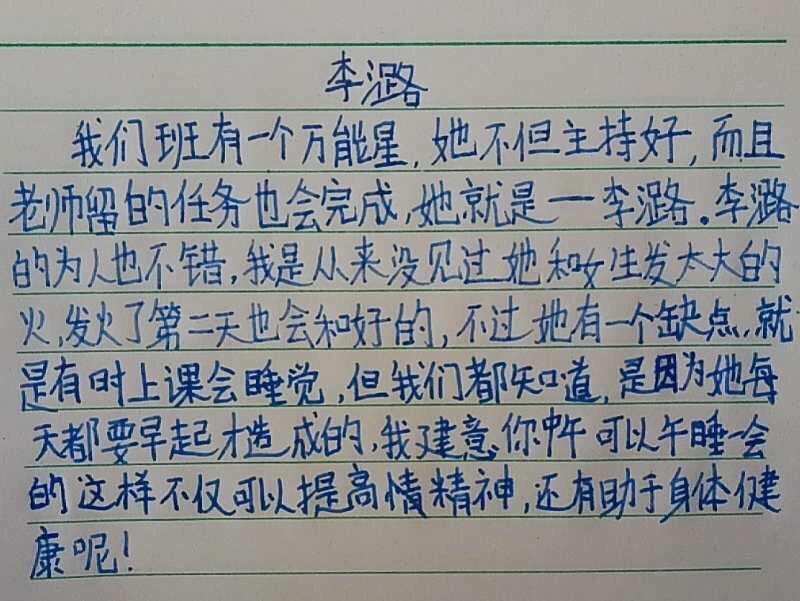 李潞
我们班有一个万能星,她不但主持好,而且
老师留的任务也会完成,她就是一李潞。李潞
的为人也不错,我是从来没见过她和女生发太大的
火,发火了第二天也会和好的,不过她有一个缺点,就
是有时上课会睡觉,但我们都知道,是因为她每
天都要早起才造成的,我建意你中午可以午睡一会
的这样不仅可以提高情精神,还有助于身体健
康呢!